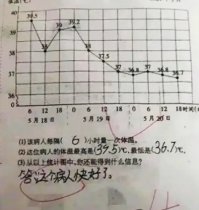 40
39.5
39
39.2
39
38
38
38
37.5
37
37
36.8
37
36.8
36.7
36
6 12 18 0 6 12 18 0 6 12 18时间
5月18日 5月19日 5月20日
(1)该病人每隔( 6 )小时量一次体温。
(2)这位病人的体温最高是(39.5)℃,最低是(36.7)℃。
(3)从以上统计图中,你还能得到什么信息?
答:这个病人快好了。